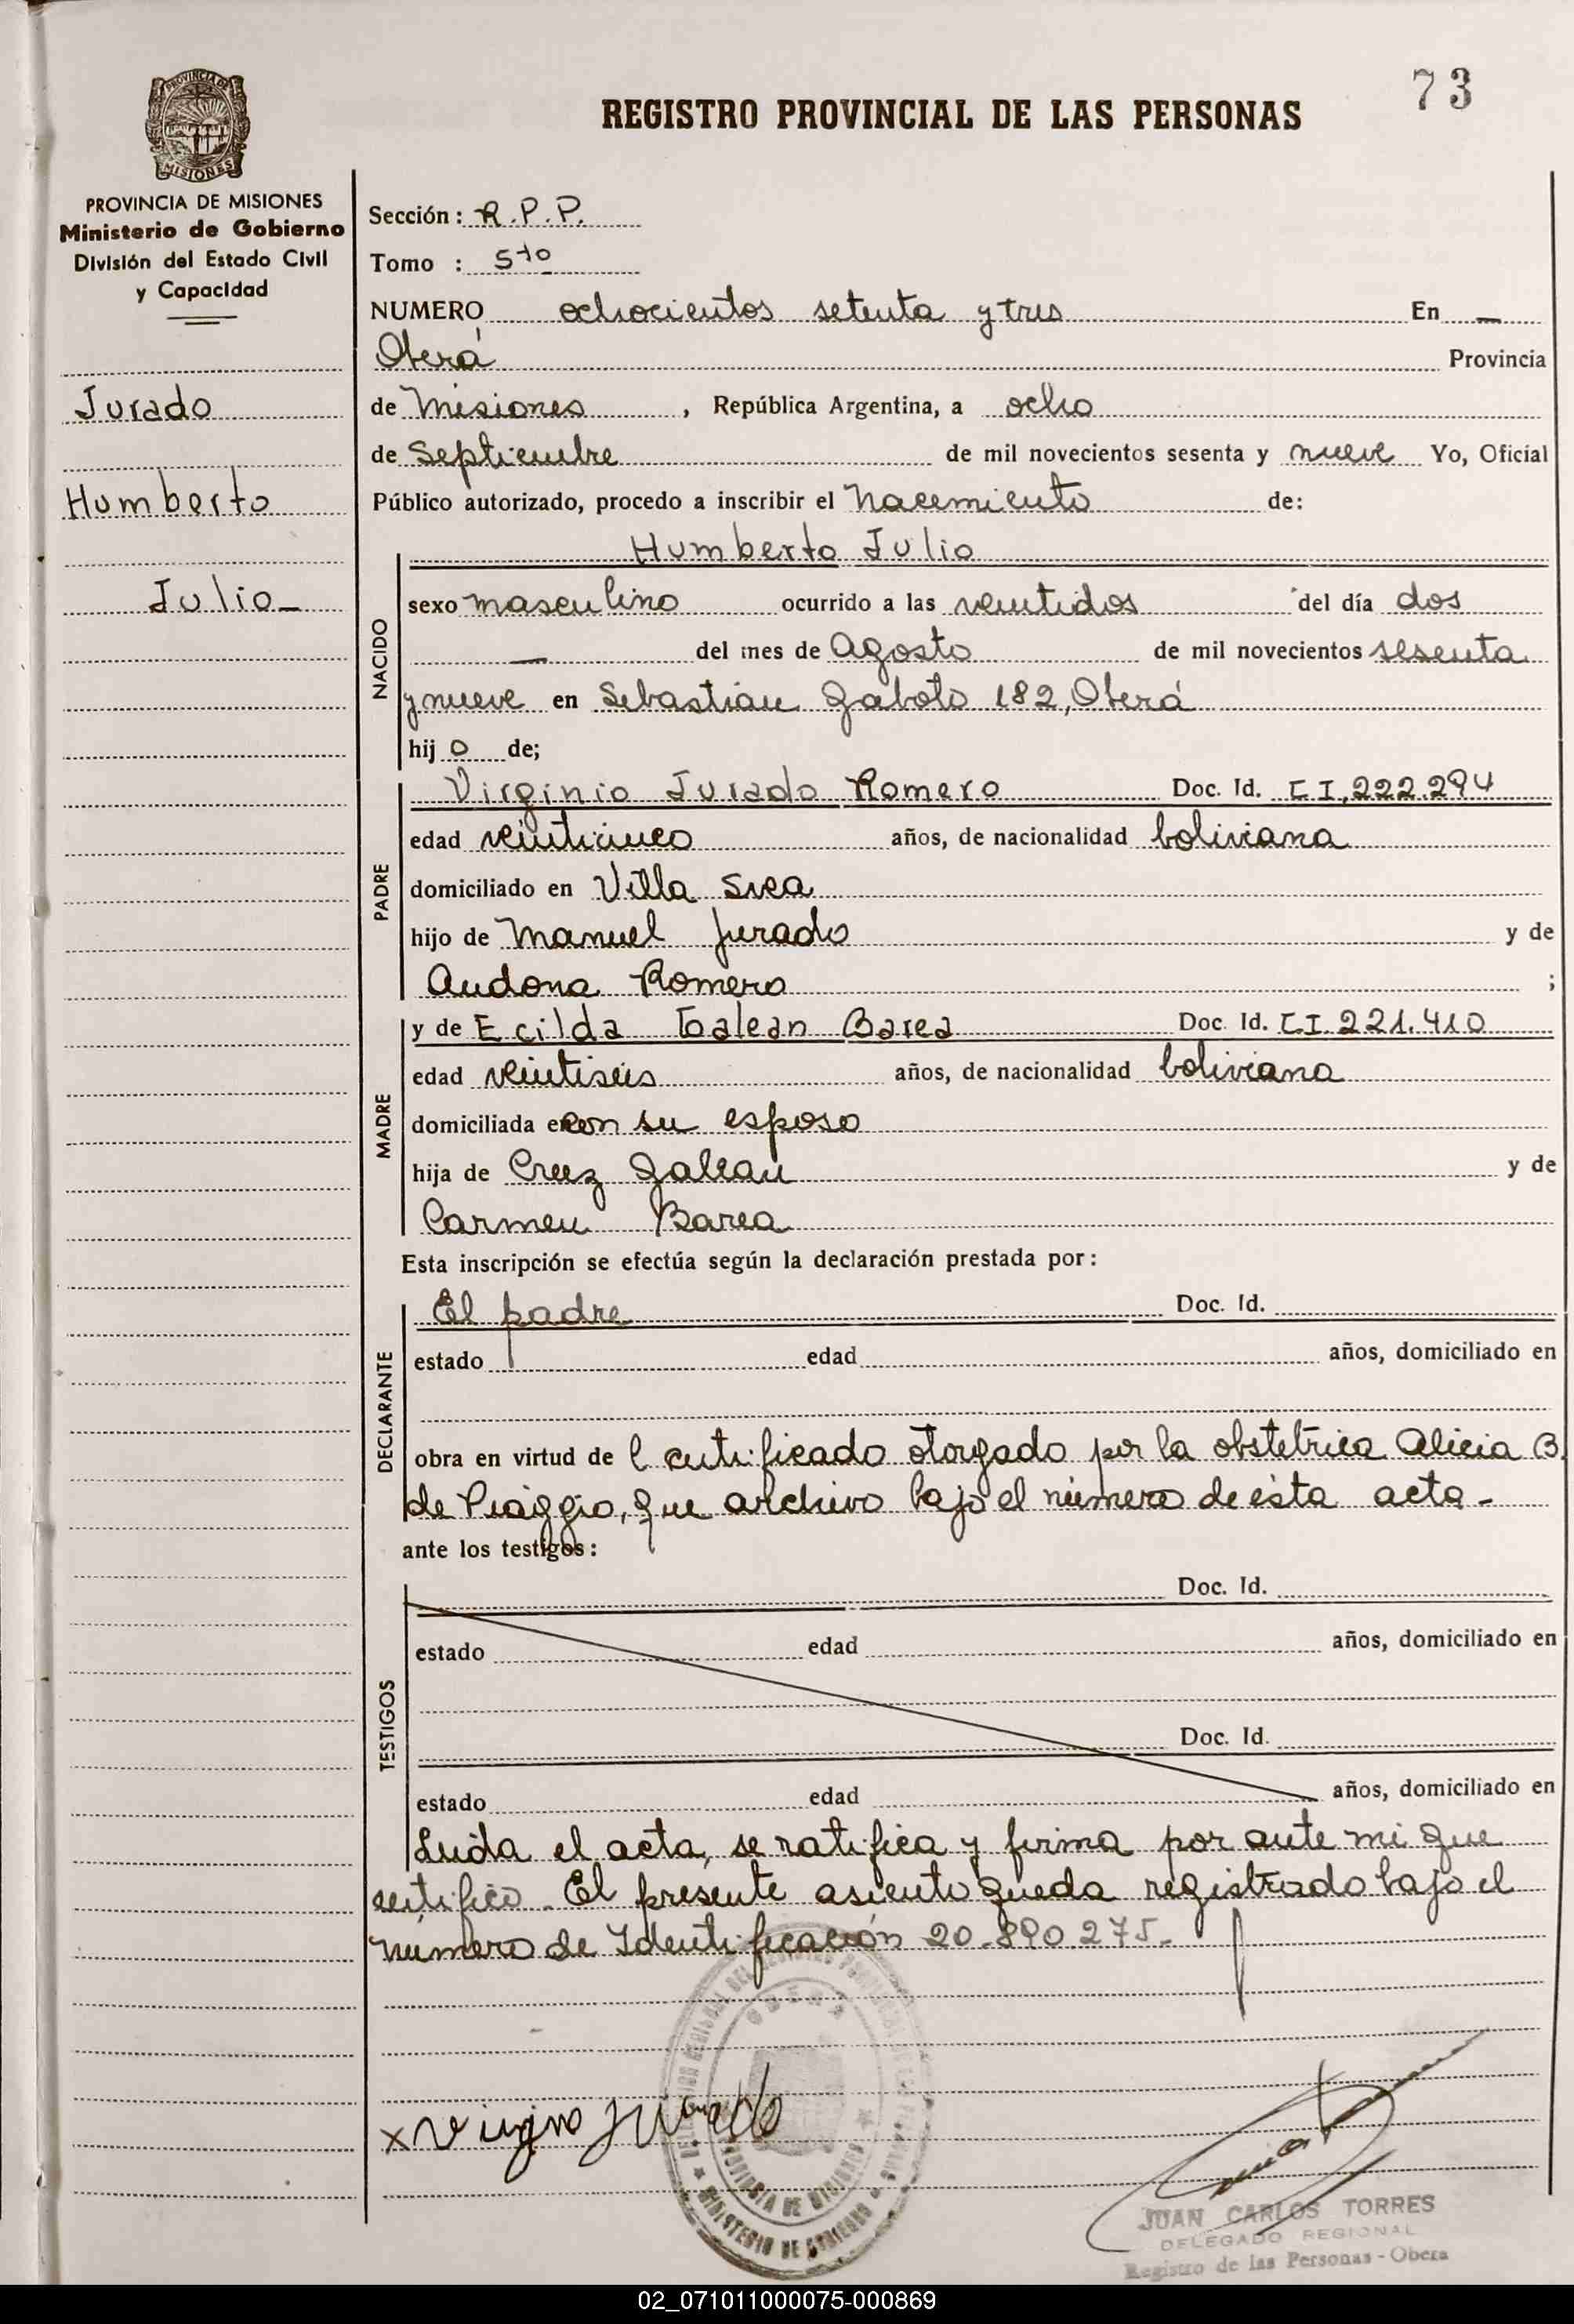 73
REGISTRO PROVINCIAL DE LAS PERSONAS
PROVINCIA DE MISIONES
PROVINCIA DE MISIONES
Ministerio de Gobierno
División del Estado Civil
y Capacidad
Jurado
Humberto
Julio_
Sección: R.P.P.
Tomo : 5to
NUMERO ochocientos setenta y tres En —
Oberá Provincia
de Misiones , República Argentina, a ocho
de Septiembre de mil novecientos sesenta y nueve Yo, Oficial
Público autorizado, procedo a inscribir el Nacemiento de:
NACIDO
Humberto Julio
sexo masculino ocurrido a las veintidos del día dos
— del mes de Agosto de mil novecientos sesenta
y nueve en Sebastian Gaboto 182, Oberá
hij o de;
PADRE
Virginio Jurado Romero Doc. Id. C I. 222.294
edad veinticinco años, de nacionalidad boliviana
domiciliado en Villa Svea
hijo de Manuel Jurado y de
Audona Romero ;
MADRE
y de Ecilda Galean Barea Doc. Id. C.I. 221.410
edad veintiseis años, de nacionalidad boliviana
domiciliada en con su esposo
hija de Cruz Galean y de
Carmen Barea
Esta inscripción se efectúa según la declaración prestada por:
DECLARANTE
El padre Doc. Id.
estado edad años, domiciliado en
obra en virtud de l certificado otorgado por la obstetrica Alicia B.
de Piaggio, que archivo bajo el número de ésta acta -
ante los testigos:
TESTIGOS
Doc. Id.
estado edad años, domiciliado en
Doc. Id.
estado edad años, domiciliado en
Leida el acta, se ratifica y firma por ante mi que
certifico. El presente asiento queda registrado bajo el
número de Identificación 20.890.275.
x Virginio Jurado
PROVINCIA DE MISIONES
MINISTERIO DE GOBIERNO
JUAN CARLOS TORRES
DELEGADO REGIONAL
Registro de las Personas - Obera
02_071011000075-000869